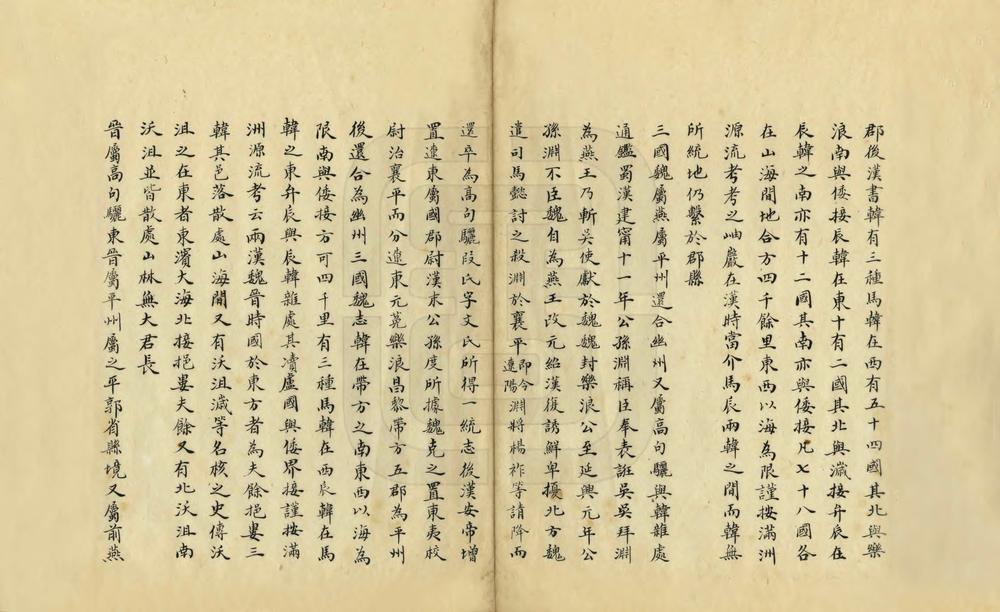 郡後漢書韓有三種馬韓在西有五十四國其北與樂
浪南與倭接辰韓在東十有二國其北與濊接弁辰在
辰韓之南亦有十二國其南亦與倭接凡七十八國各
在山海間地合方四千餘里東西以海為限謹按滿洲
源流考考之岫巖在漢時當介馬辰兩韓之間而韓無
所統地仍繫於郡縣
三國魏屬燕屬平州還合幽州又屬高句驪與韓雜處
通鑑蜀漢建甯十一年公孫淵稱臣奉表誑吳吳拜淵
為燕王乃斬吳使獻於魏魏封樂浪公至延興元年公
孫淵不臣魏自為燕王改元紹漢復誘鮮卑擾北方魏
遣司馬懿討之殺淵於襄平即今遼陽淵將楊祚等請降而
還卒為高句驪段氏字文氏所得一統志後漢安帝增
置遼東屬國郡尉漢末公孫度所據魏克之置東夷校
尉治襄平而分遼東元菟樂浪昌黎帶方五郡為平州
後還合為幽州三國魏志韓在帶方之南東西以海為
限南與倭接方可四千里有三種馬韓在西辰韓在馬
韓之東弁辰與辰韓雜處其瀆盧國與倭界接謹按滿
洲源流考云兩漢魏晉時國於東方者為夫餘挹婁三
韓其邑落散處山海間又有沃沮濊等名核之史傳沃
沮之在東者東濱大海北接挹婁夫餘又有北沃沮南
沃沮並皆散處山林無大君長
晉屬高句驪東晉屬平州屬之平郭省縣境又屬前燕